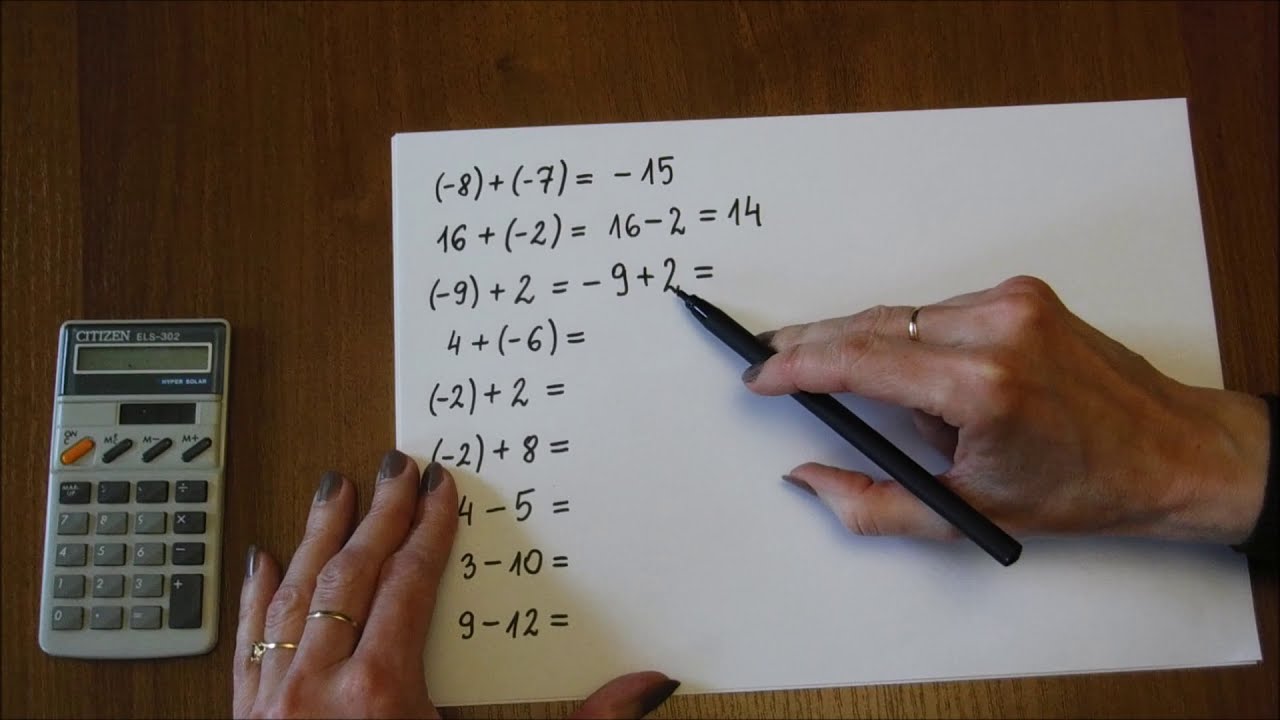 (-8)+(-7) = -15
16 + (-2) = 16-2 = 14
(-9) + 2 = -9+2 =
4 + (-6) =
(-2) + 2 =
(-2) + 8 =
4 - 5 =
3 - 10 =
9 - 12 =
CITIZEN ELS-302
HYPER SOLAR
ON
C M M- M+
÷
7 8 9 ×
4 5 6 −
1 2 3 +
0 . =